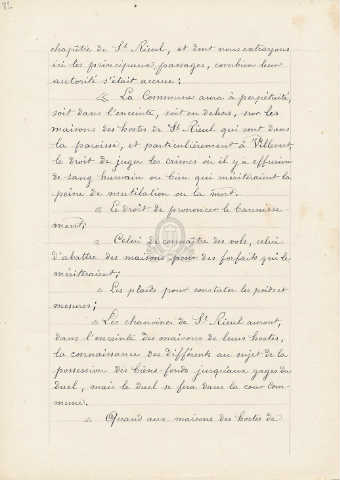 82
chapître de St Rieul, et dont nous extrayons
ici les principaux passages, combien leur
autorité s'était accrue :
« La Commune aura à perpétuité,
soit dans l'enceinte, soit en dehors, sur les
maisons des hostes de St Rieul qui sont dans
la paroisse, et particulièrement à Villevert,
le droit de juger les crimes où il y a effusion
de sang humain ou bien qui mériteraient la
peine de mutilation ou la mort.
« Le droit de prononcer le bannisse-
ment ;
« Celui de connaître des vols, celui
d'abattre des maisons pour des forfaits qui le
mériteraient ;
« Les plaids pour constater les poids et
mesures ;
« Les chanoines de St Rieul auront,
dans l'enceinte des maisons de leurs hostes,
la connaissance des différents au sujet de la
possession des biens-fonds jusqu'aux gages du
duel, mais le duel se fera dans la cour com-
mune.
« Quand aux maisons des hostes de